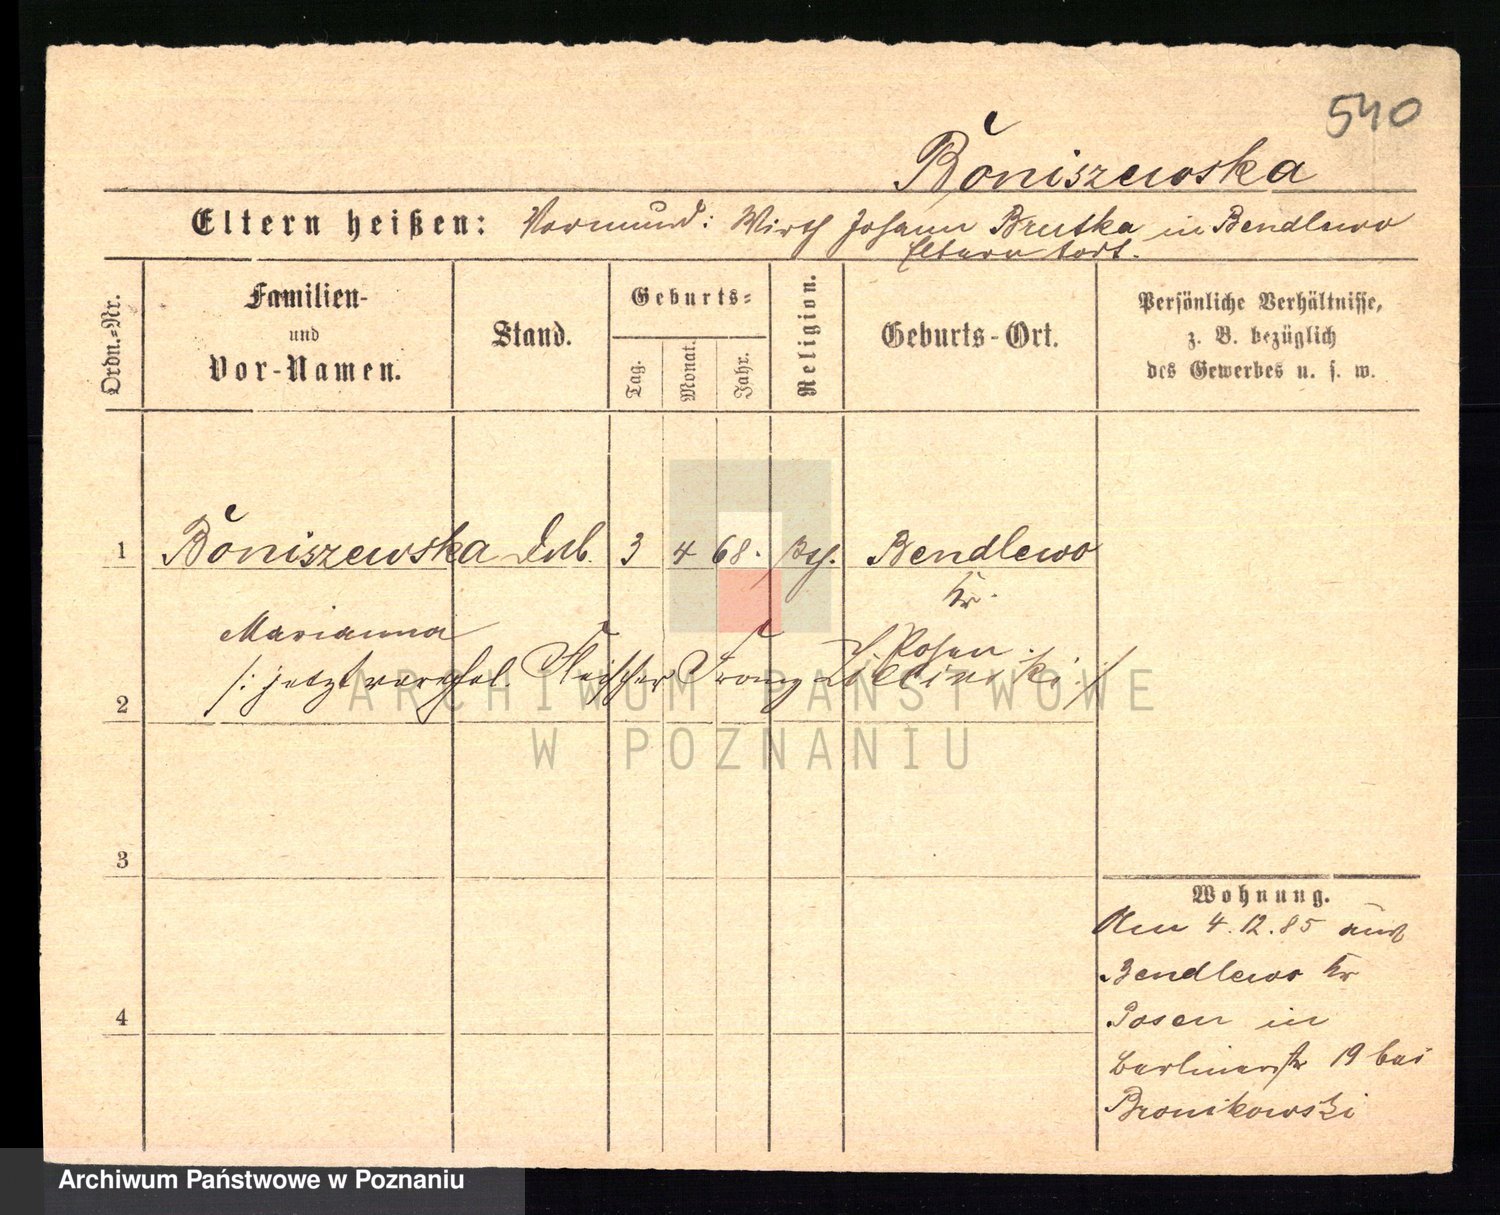 540
Boniszewska
Eltern heißen: Vormund: Wirth Johann Brutka in Bendlewo
Eltern todt.
Ordn.-Nr.
Familien-
und
Vor-Namen.
Stand.
Geburts-
Tag.
Monat.
Jahr.
Religion.
Geburts-Ort.
Persönliche Verhältnisse,
z. B. bezüglich
des Gewerbes u. s. w.
1 Boniszewska 3 4 68. Bendlewo
Kr.
Marianna Posen.
/: jetzt verehel. Fleischer Franz :/
2
ARCHIWUM PAŃSTWOWE
W POZNANIU
3
4
Wohnung.
Am 4.12.85 aus
Bendlewo Kr
Posen in
Berlinerstr 19 bei
Bronikowski
Archiwum Państwowe w Poznaniu